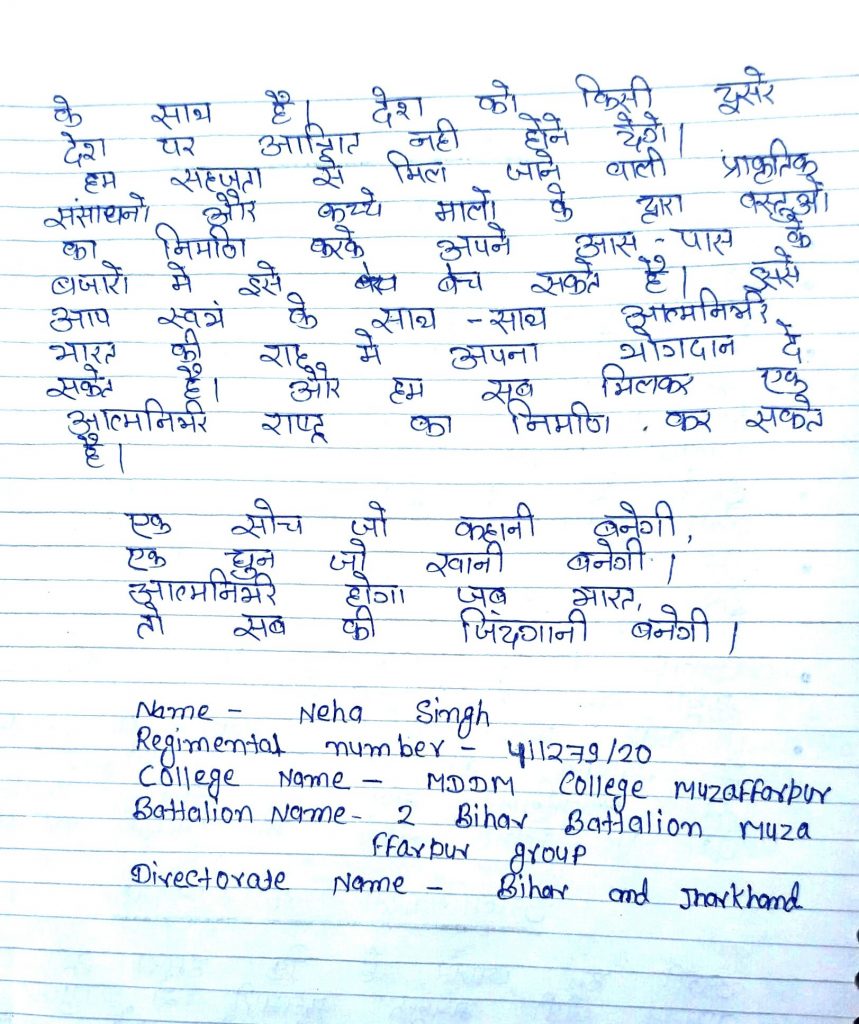 के साथ है। देश को किसी दूसरे
देश पर आश्रित नही होने देगे।
हम सहजता से मिल जाने वाली प्राकृतिक
संसाधनो और कच्चे मालो के द्वारा वस्तूओ
का निर्माण करके अपने आस-पास के
बजारो मे इसे बेच सकते है। इससे
आप स्वयं के साथ-साथ आत्मनिर्भर
भारत की राह मे अपना योगदान दे
सकते है। और हम सब मिलकर एक
आत्मनिर्भर राष्ट्र का निर्माण कर सकते
है।
एक सोच जो कहानी बनेगी,
एक धुन जो रवानी बनेगी।
आत्मनिर्भर होगा जब भारत,
तो सब की जिंदगानी बनेगी।
Name - Neha Singh
Regimental number - 411279/20
College Name - MDDM College Muzaffarpur
Battalion Name- 2 Bihar Battalion Muza
ffarpur group
Directorate Name - Bihar and Jharkhand